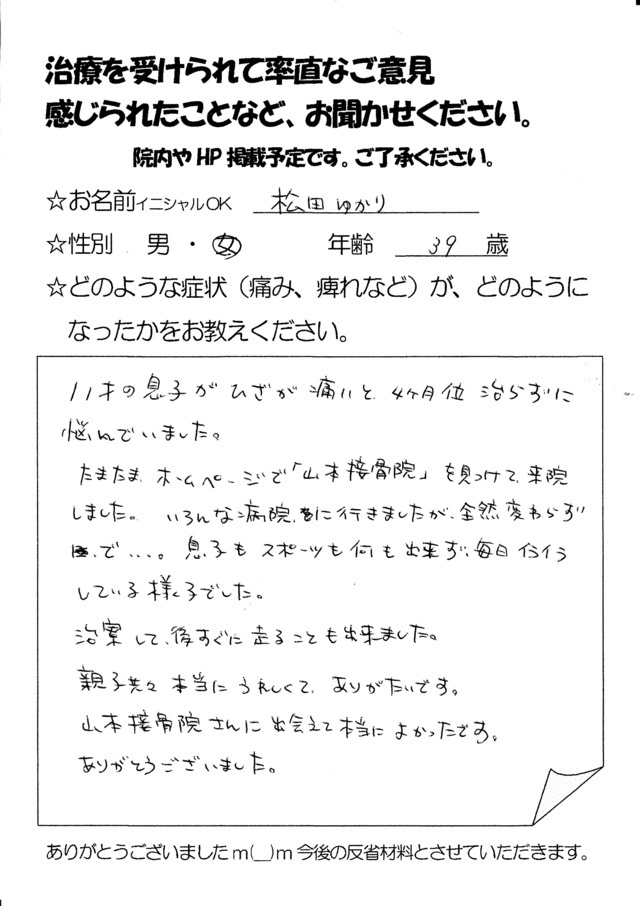 治療を受けられて率直なご意見
感じられたことなど、お聞かせください。
院内やHP掲載予定です。ご了承ください。
☆お名前イニシャルOK 松田ゆかり
☆性別 男・女 年齢 39 歳
☆どのような症状（痛み、痺れなど）が、どのように
なったかをお教えください。
11才の息子がひざが痛いと、4ヶ月位 治らずに
悩んでいました。
たまたま ホームページで「山本接骨院」を見つけて、来院
しました。 いろんな病院に行きましたが、全然変わらず
で・・・。息子もスポーツも何も出来ず、毎日イライラ
している様子でした。
治案して、後すぐに走ることも出来ました。
親子共々 本当にうれしくて、ありがたいです。
山本接骨院さんに出会えて本当によかったです。
ありがとうございました。
ありがとうございましたm(__)m今後の反省材料とさせていただきます。